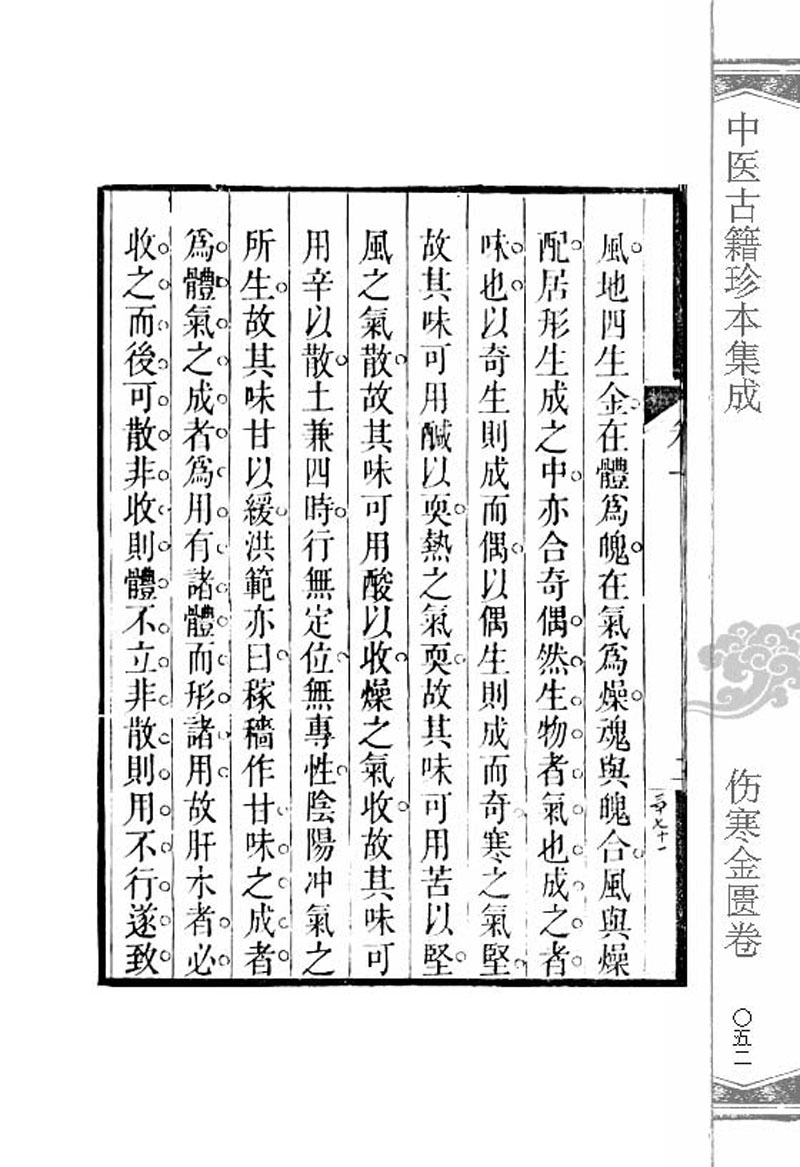 風地四生金在體爲魄在氣爲燥魂與魄合風與燥
配居形生成之中亦合奇偶然生物者氣也成之者
味也以奇生則成而偶以偶生則成而奇寒之氣堅
故其味可用鹹以耎熱之氣耎故其味可用苦以堅
風之氣散故其味可用酸以收燥之氣收故其味可
用辛以散土兼四時行無定位無專性陰陽冲氣之
所生故其味甘以緩洪範亦曰稼穡作甘味之成者
爲體氣之成者爲用有諸體而形諸用故肝木者必
收之而後可散非收則體不立非散則用不行遂致
中医古籍珍本集成
伤寒金匮卷
〇五二